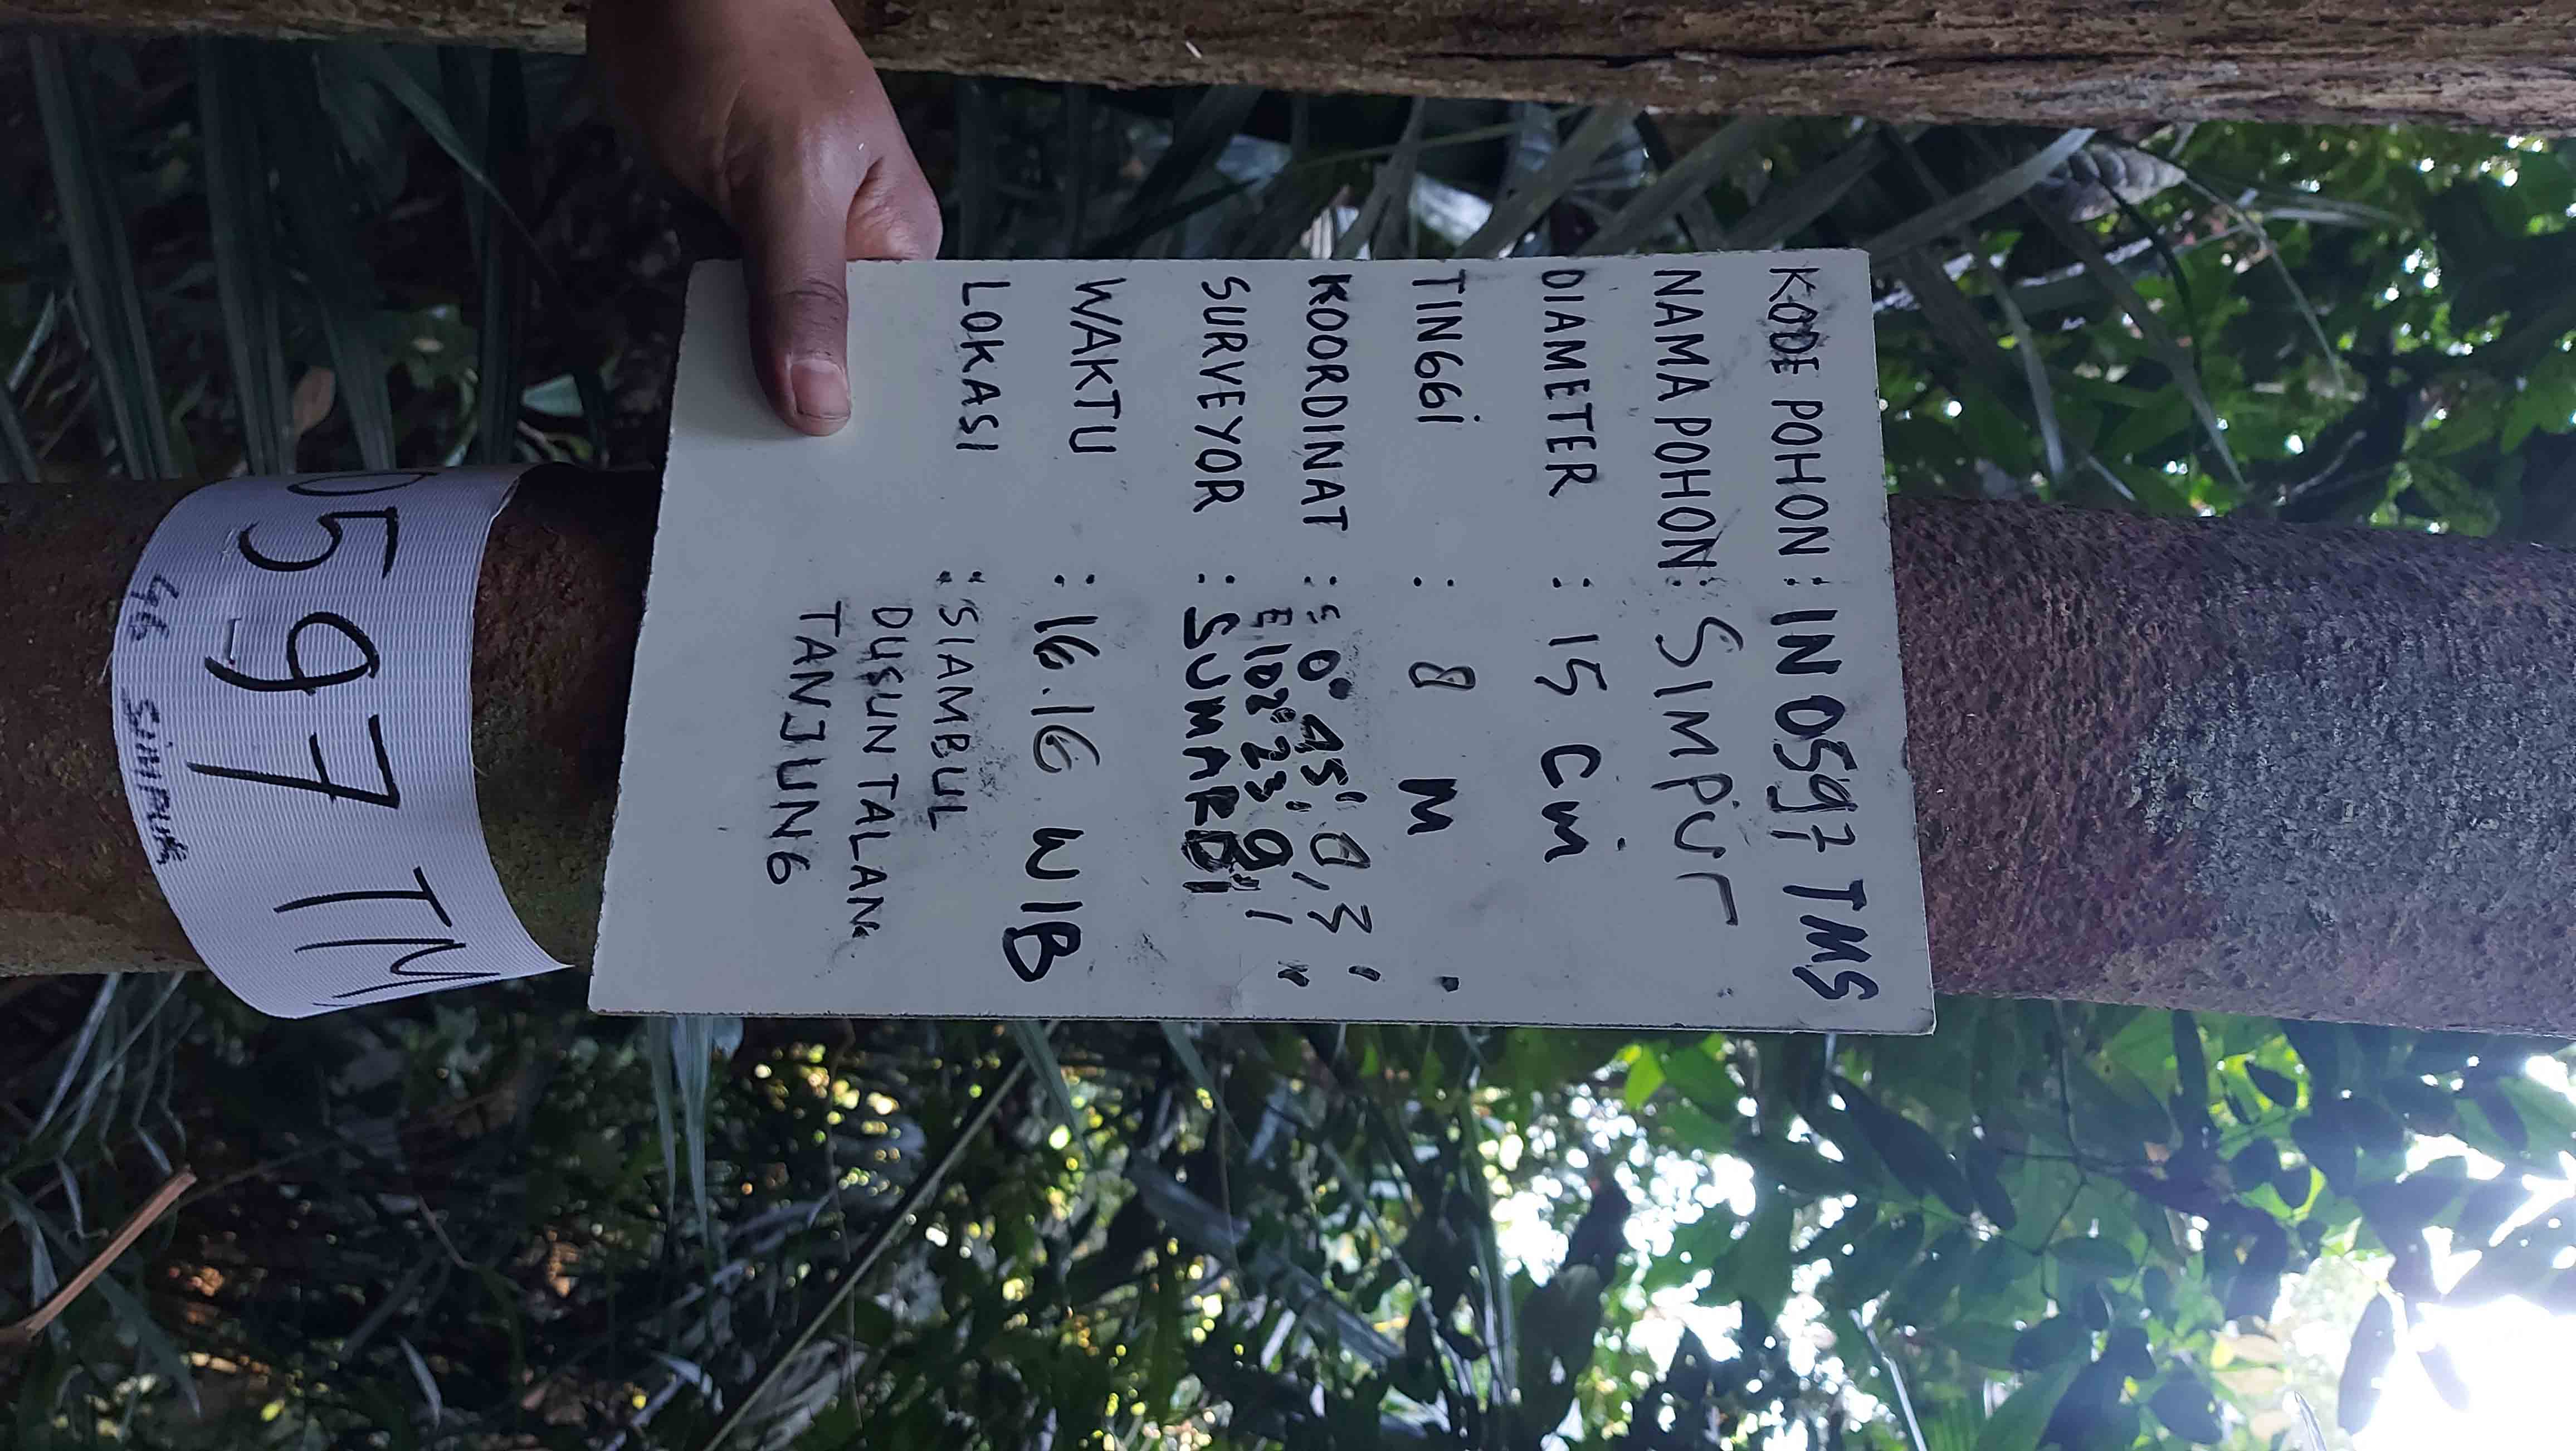 KODE POHON : IN 0597 TMS
NAMA POHON : SIMPUr
DIAMETER : 15 cm
TINGGi : 8 M
KOORDINAT : S 0° 45' 0,3"
E 102° 23' 9,1"
SURVEYOR : SUMARDI
WAKTU : 16.16 WIB
LOKASI : SIAMBUL
DUSUN TALAN
TANJUNG
0597 TM
SiMPUR